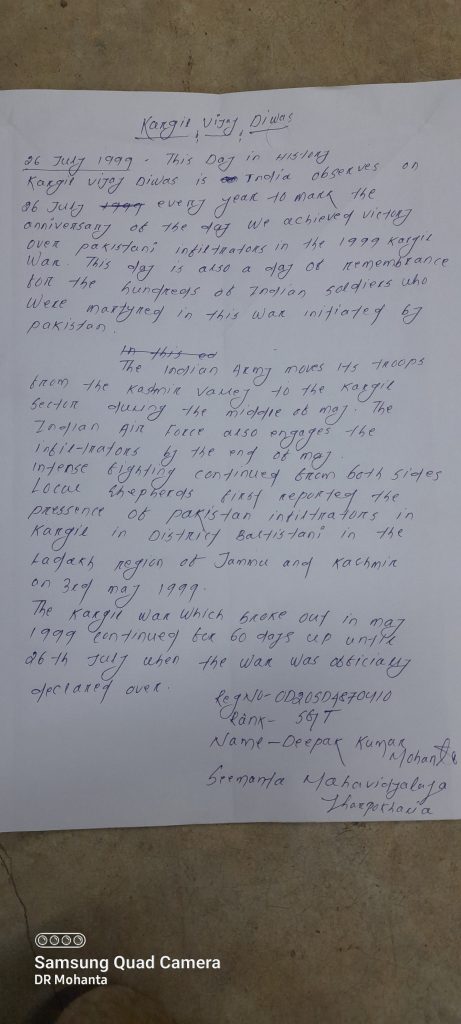 Kargil Vijay Diwas
26 July 1999 - This Day in History
Kargil Vijay Diwas is India observes on
26 July 1999 every year to mark the
anniversary of the day we achieved victory
over pakistani infiltrators in the 1999 Kargil
War. This day is also a day of remembrance
for the hundreds of Indian soldiers who
were martyred in this war initiated by
pakistan.
In this
The Indian Army moves its troops
from the Kashmir Valley to the Kargil
Sector during the middle of may. The
Indian Air Force also engages the
infil-trators by the end of may.
Intense fighting continued from both sides
Local shepherds first reported the
pressence of pakistan infiltrators in
Kargil in District Baltistani in the
Ladakh region of Jammu and Kachmir
on 3rd may 1999.
The Kargil war which broke out in may
1999 continued for 60 days up until
26th July when the war was officially
declared over.
Reg No- OD20SD4870410
Rank- SGT
Name - Deepak Kumar
Mohanta
Seemanta Mahavidyalaya
Jharpokharia
Samsung Quad Camera
DR Mohanta